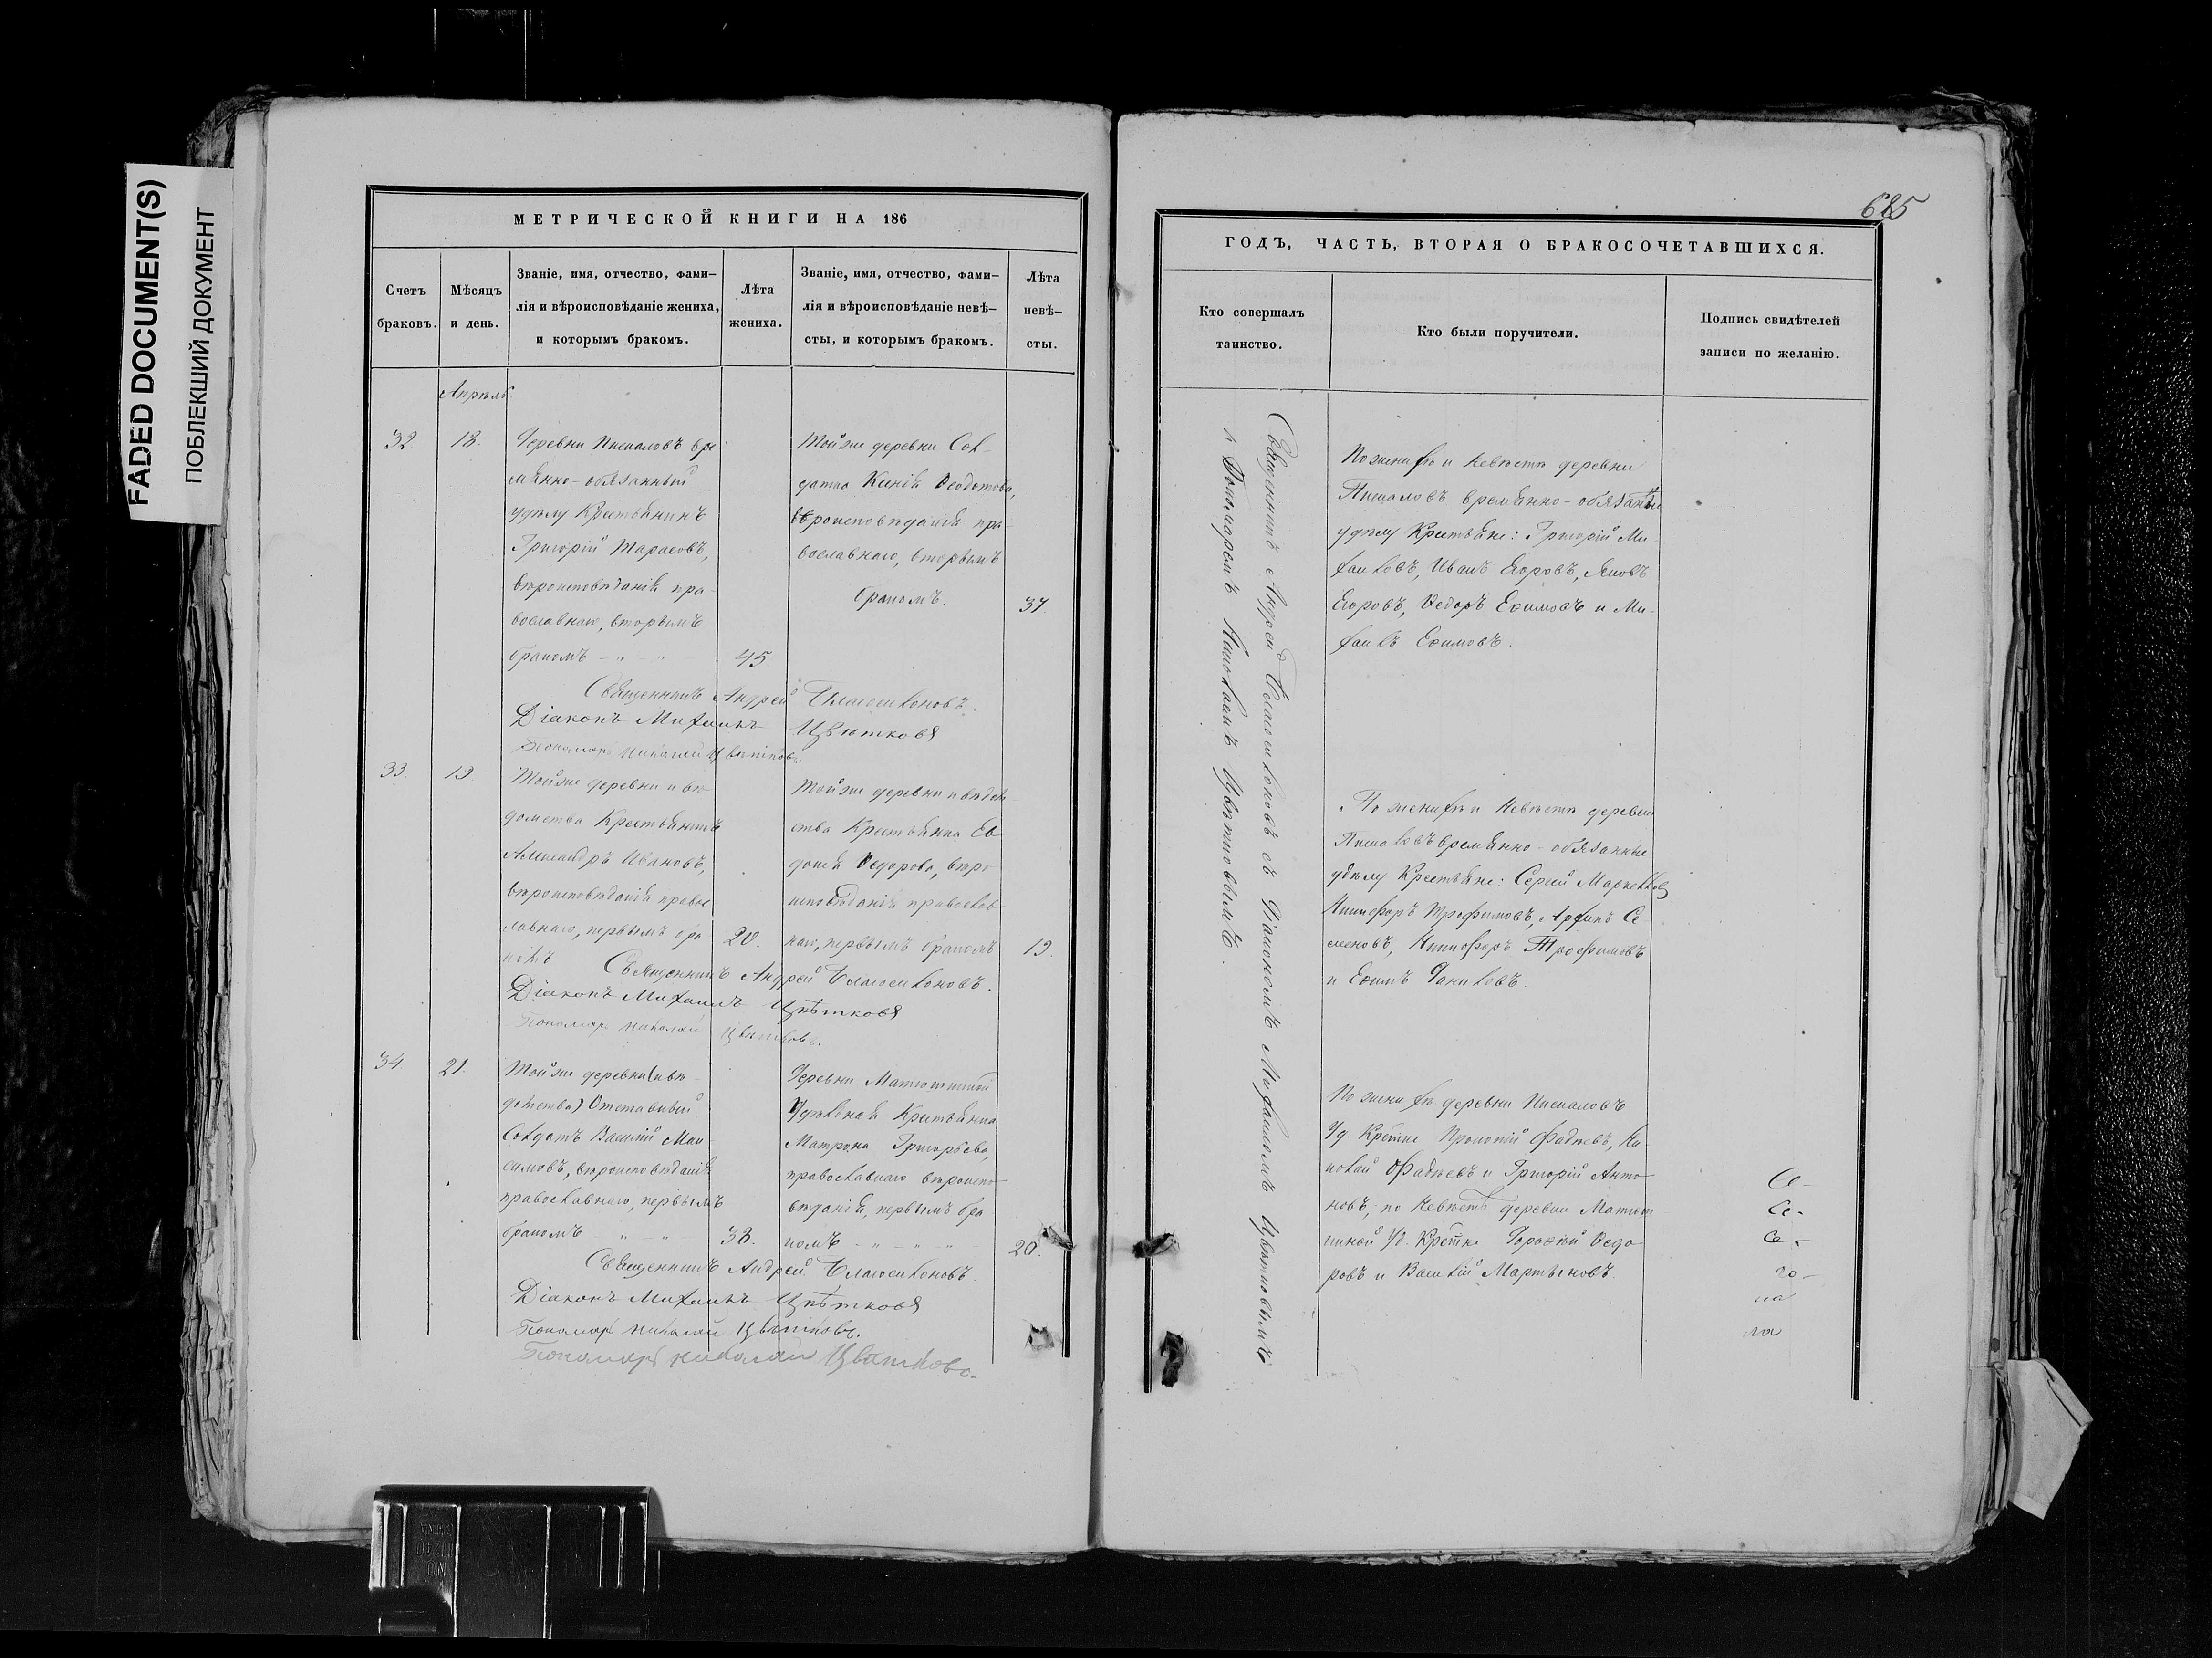 FADED DOCUMENT(S)
ПОБЛЕКШИЙ ДОКУМЕНТ
МЕТРИЧЕСКОЙ КНИГИ НА 186
Счетъ браковъ.
Мѣсяцъ и день.
Званіе, имя, отчество, фами-
лія и вѣроисповѣданіе жениха,
и которымъ бракомъ.
Лѣта жениха.
Званіе, имя, отчество, фами-
лія и вѣроисповѣданіе невѣ-
сты, и которымъ бракомъ.
Лѣта невѣ-
сты.
Апрѣль
32.
18.
Деревни Пискаловъ вре
мѣнно-обязанный
удѣлу Крестьянинъ
Григорій Тарасовъ,
вѣроисповѣданія пра-
вославнаго, вторымъ
бракомъ
45.
Тойже деревни Сол-
датка Ѳеодотова,
вѣроисповѣданія пра-
вославнаго, вторымъ
бракомъ.
37
Священникъ Андрей Благосклоновъ.
Діаконъ Михаилъ Цвѣтковъ
Пономарь Николай Цвѣтковъ.
33.
19.
Тойже деревни и вѣ-
домства Крестьянинъ
Александръ Ивановъ,
вѣроисповѣданія право
славнаго, первымъ бра
20.
Тойже деревни и вѣдом
ства Крестьянка Ев
докія Ѳедорова, вѣро
исповѣданія православ
наго, первымъ бракомъ
19.
Священникъ Андрей Благосклоновъ.
Діаконъ Михаилъ Цвѣтковъ
Пономарь Николай Цвѣтковъ.
34
21.
Тойже деревни (и вѣ-
домства) Отставный
Солдатъ Василій Мак
симовъ, вѣроисповѣданія
православнаго, первымъ
бракомъ
38.
Деревни
Удѣльная Крестьянка
Матрона Григорьева,
православнаго вѣроиспо-
вѣданія, первымъ бра
комъ
20.
Священникъ Андрей Благосклоновъ.
Діаконъ Михаилъ Цвѣтковъ
Пономарь Николай Цвѣтковъ.
Пономарь Николай Цвѣтковъ.
685
ГОДЪ, ЧАСТЬ, ВТОРАЯ О БРАКОСОЧЕТАВШИХСЯ.
Кто совершалъ
таинство.
Кто были поручители.
Подпись свидѣтелей
записи по желанію.
Священникъ Андрей Благосклоновъ съ Діакономъ Михаиломъ Цвѣтковымъ
и Пономаремъ Николаемъ Цвѣтковымъ.
По женихѣ и невѣстѣ деревни
Пискаловъ времѣнно-обязанные
удѣлу Крестьяне: Григорій Ми-
хаиловъ, Иванъ Егоровъ, Яковъ
Егоровъ, Ѳедоръ Ефимовъ и Ми-
хаилъ Ефимовъ.
По женихѣ и невѣстѣ деревни
Пискаловъ времѣнно-обязанные
удѣлу Крестьяне: Сергій
Никифоръ Трофимовъ, Архипъ Се
меновъ, Никифоръ Трофимовъ
и Ефимъ Даниловъ.
По женихѣ деревни Пискаловъ
Уд. Крестне Прокопій Фадѣевъ, Ни
колай Фадѣевъ и Григорій Анто-
новъ; по невѣстѣ деревни
Уд. Крестне Дорофей Ѳедо
ровъ и Василій Мартыновъ.
Се-
Се-
Се-
го-
на
ла